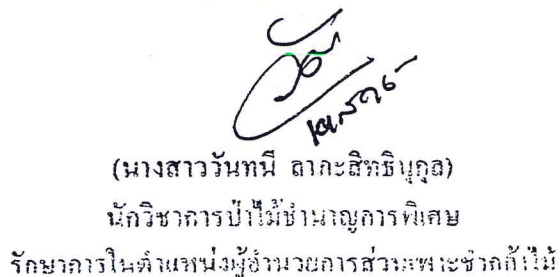 (นางสาววันทนี ลาภะสิทธินุกูล)
นักวิชาการป่าไม้ชำนาญการพิเศษ
รักษาการในตำแหน่งผู้อำนวยการส่วนเพาะชำกล้าไม้